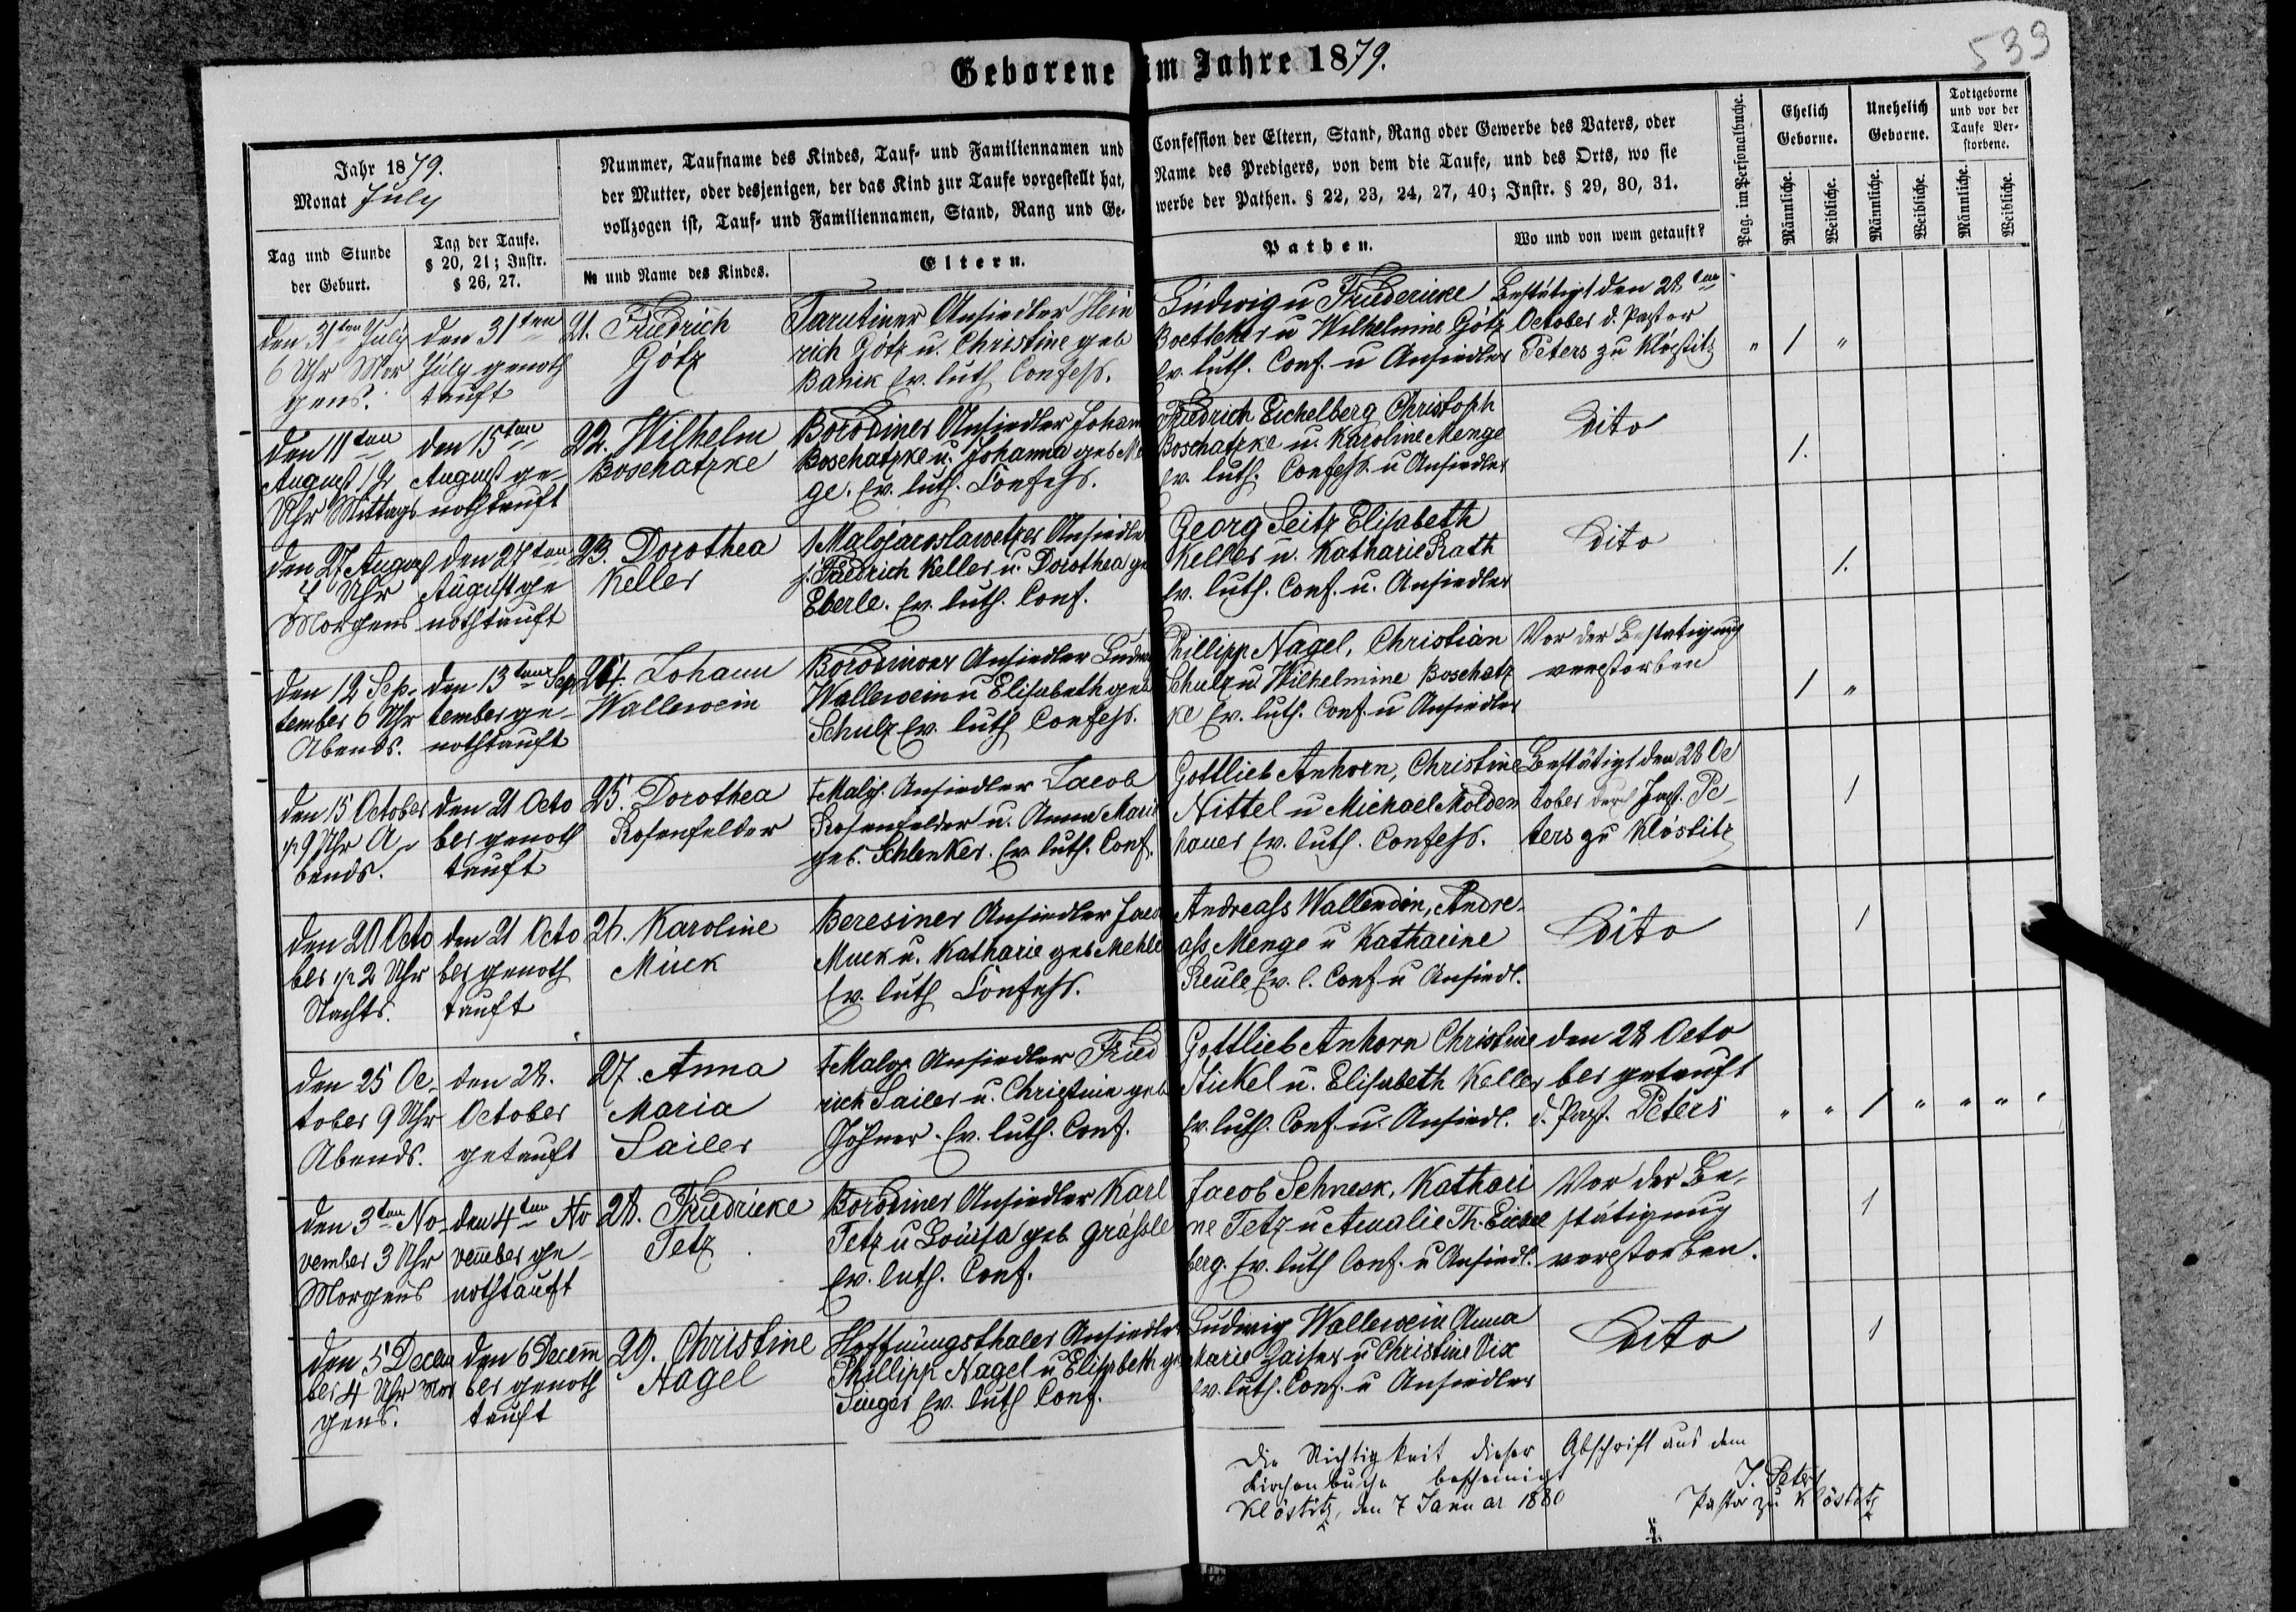 539
Geborene im Jahre 1879.
Jahr 1879.
Monat July
Nummer, Taufname des Kindes, Tauf- und Familiennamen und
der Mutter, oder desjenigen, der das Kind zur Taufe vorgestellt hat,
vollzogen ist, Tauf- und Familiennamen, Stand, Rang und Ge-
Confession der Eltern, Stand, Rang oder Gewerbe des Vaters, oder
Name des Predigers, von dem die Taufe, und des Orts, wo sie
werbe der Pathen. § 22, 23, 24, 27, 40; Instr. § 29, 30, 31.
Pag. im Personalbuche.
Ehelich
Geborne.
Unehelich
Geborne.
Todtgeborne
und vor der
Taufe Ver-
storbene.
Männliche.
Weibliche.
Männliche.
Weibliche.
Männliche.
Weibliche.
Tag und Stunde
der Geburt.
Tag der Taufe.
§ 20, 21; Instr.
§ 26, 27.
№ und Name des Kindes.
Eltern.
Pathen.
Wo und von wem getauft?
den 31ten July
6 Uhr Mor
gens.
den 31ten
July genoth
tauft
21. Friedrich
Götz
Tarutiner Ansiedler Hein
rich Götz u. Christine geb
Banik Ev. luth Confess.
Ludwig u Friedericke
Boettcher u Wilhelmine Götz
Ev. luth. Conf. u Ansiedler
Bestätigt den 28ten
October d. Pastor
Peters zu Klöstitz
" 1 "
den 11ten
August 12
Uhr Mittags
den 15ten
August ge-
nothtauft
22. Wilhelm
Boschatzke
Borodiner Ansiedler Johann
Boschatzke u. Johanna geb Me
ge. Ev. luth. Confess.
Friedrich Eichelberg Christoph
Boschatzke u. Karoline Menge
Ev. luth. Confess. u Ansiedler
Dito
1.
den 27 August
7 Uhr
Morgens
den 27ten
August ge
nothtauft
23. Dorothea
Keller
1 Malojaroslawetzer Ansiedler
Friedrich Keller u. Dorothea ge
Eberle. Ev. luth. Conf.
Georg Seitz Elisabeth
Keller u. Katharie Rath
Ev. luth. Conf. u. Ansiedler
Dito
1.
den 12 Sep-
tember 6 Uhr
Abends.
den 13ten Sep
tember ge-
nothtauft
24. Johann
Wallewein
Borodinoer Ansiedler Ludw
Wallewein u Elisabeth geb
Schulz Ev. luth Confess.
Phillipp Nagel, Christian
Schulz u. Wilhelmine Boschatz
ke Ev. luth. Conf. u Ansiedler
Vor der Bestatigung
verstorben
1 "
den 15 October
½ 9 Uhr A
bends.
den 21 Octo
ber genoth
tauft
25. Dorothea
Rosenfelder
1 Maloj. Ansiedler Jacob
Rosenfelder u. Anna Mari
geb. Schlenker. Ev. luth. Conf.
Gottlieb Anhorn, Christine
Nittel u Michael Molden
hauer Ev. luth. Confess.
Bestätigt den 28 Oc
tober durch Past. Pe-
ters zu Klöstitz
1
den 20 Octo
ber ½ 2 Uhr
Nachts.
den 21 Octo
ber genoth
tauft
26. Karoline
Muck
Beresiner Ansiedler Jaco
Muck u. Katharie geb Mehl
Ev. luth Confess.
Andreass Wallewein, Andre-
ass Menge u Katharine
Reule Ev. l. Conf u Ansiedl.
Dito
1
den 25 Oc-
tober 9 Uhr
Abends.
den 28.
October
getauft
27. Anna
Maria
Sailer
1 Maloj Ansiedler Fried
rich Sailer u. Christine geb
Höhner. Ev. luth. Conf.
Gottlieb Anhorn Christine
Stickel u. Elisabeth Keller
Ev. luth. Conf. u. Ansiedl.
den 28 Octo
ber getauft
d. Past. Peters
" " 1 " " " "
den 3ten No-
vember 3 Uhr
Morgens
den 4ten No
vember ge
nothtauft
28. Friedricke
Tetz
Borodiner Ansiedler Karl
Tetz u Louisa geb Grässle
Ev. luth. Conf.
Jacob Schneck, Kathari
ne Tetz u Amalie Th. Eichel
berg. Ev. luth Conf. u Ansiedl.
Vor der Be-
stätigung
verstorben.
1
den 5 Decem
ber 4 Uhr Mor
gens.
den 6 Decem
ber genoth
tauft
29. Christine
Nagel
Hoffnungsthaler Ansiedler
Phillipp Nagel u Elisabeth ge
Singer Ev. luth Conf.
Ludwig Wallewein Anna
Marie Zaiser u Christine Vix
Ev. luth. Conf. u Ansiedler
Dito
1
Die Richtigkeit dieser Abschrift aus dem
Kirchenbuche bescheinigt
Klöstitz, den 7 Januar 1880
J. Peters
Pastor zu Klöstitz